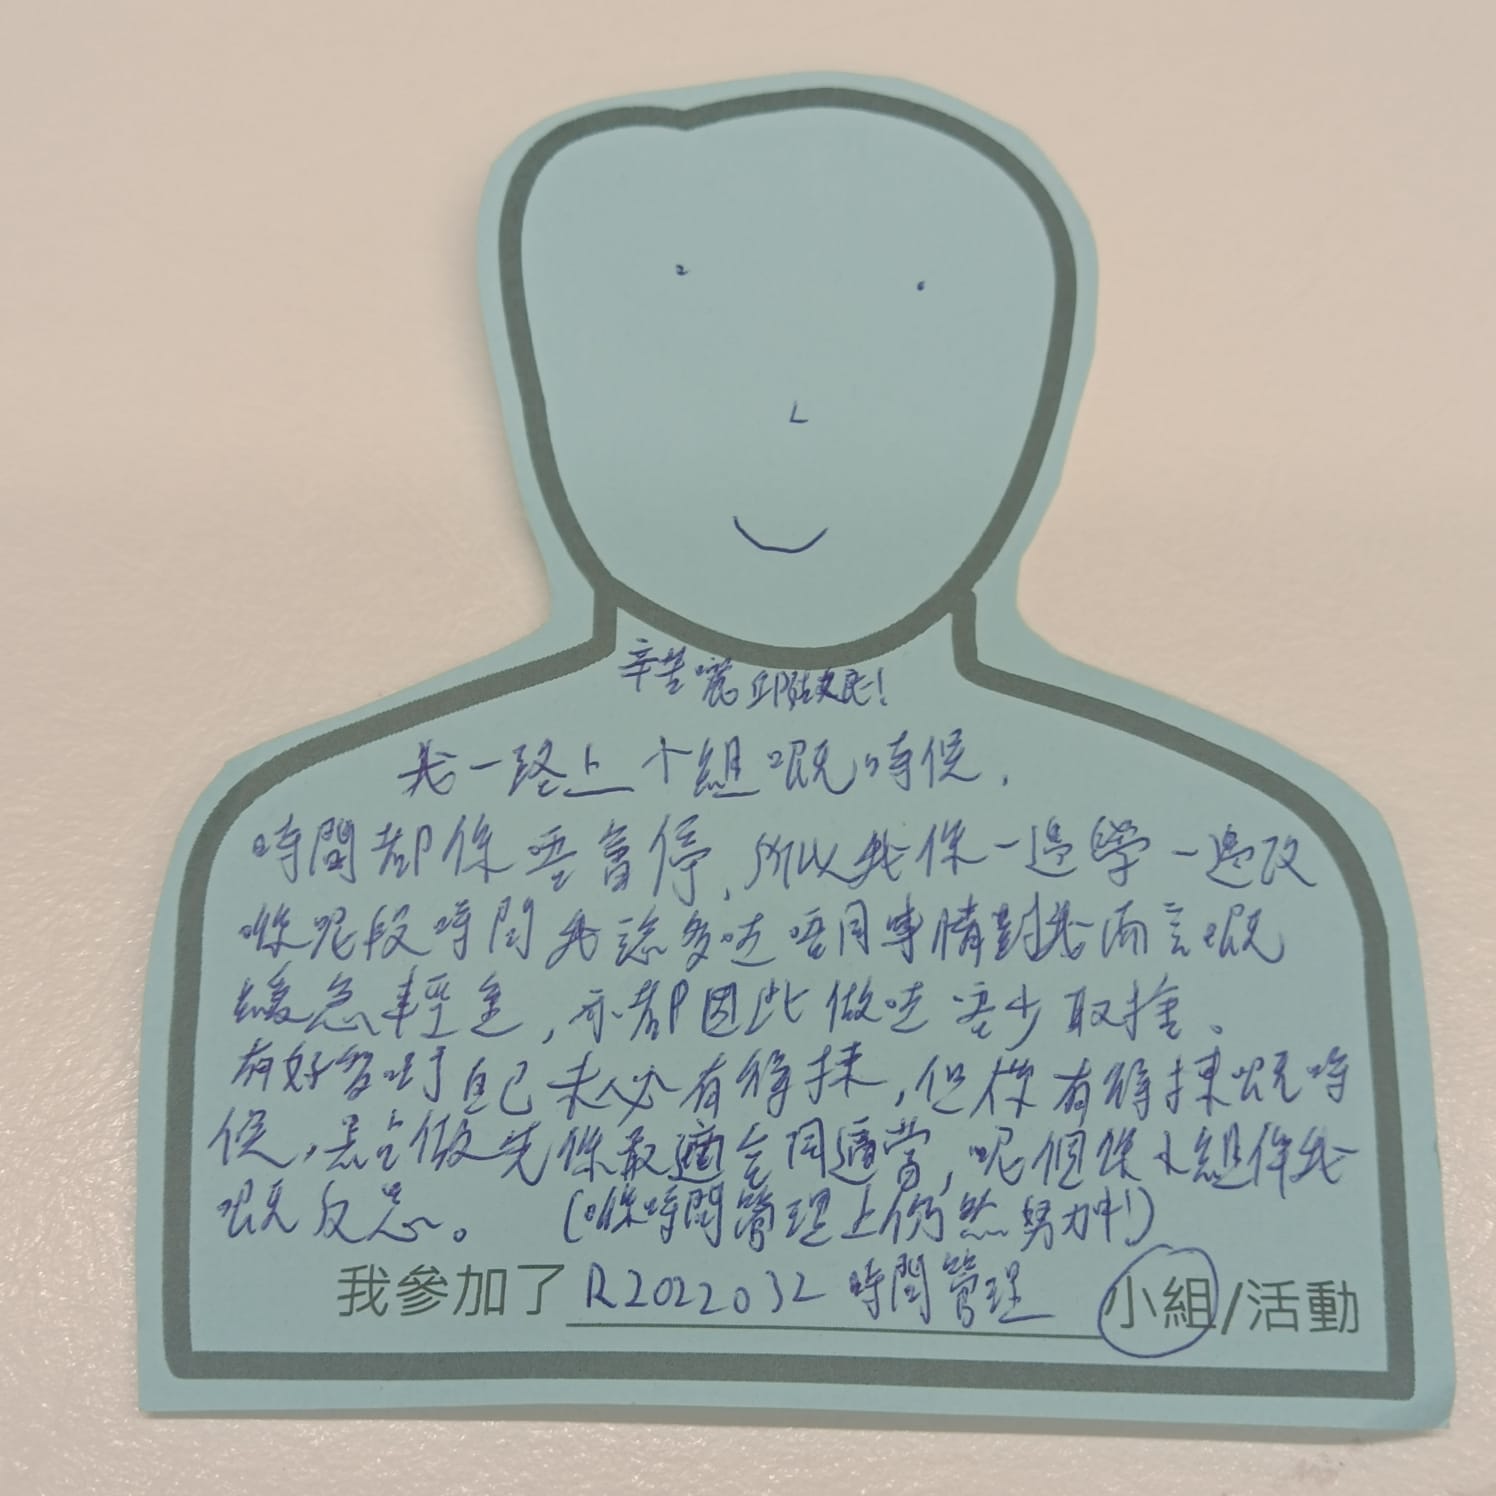 辛苦嗮
我一路上小組嘅時候,
時間都係唔會停,所以我係一邊學一邊改
喺呢段時間我諗多咗唔同事情對我而言嘅
緩急輕重,亦都因此做咗唔少取捨。
有好多嘢自己未必有得揀,但係有得揀嘅時
候,點做先係最適合同適當,呢個係小組俾我
嘅反思。(喺時間管理上仍然努力中!)
我參加了 R2022032 時間管理 小組/活動